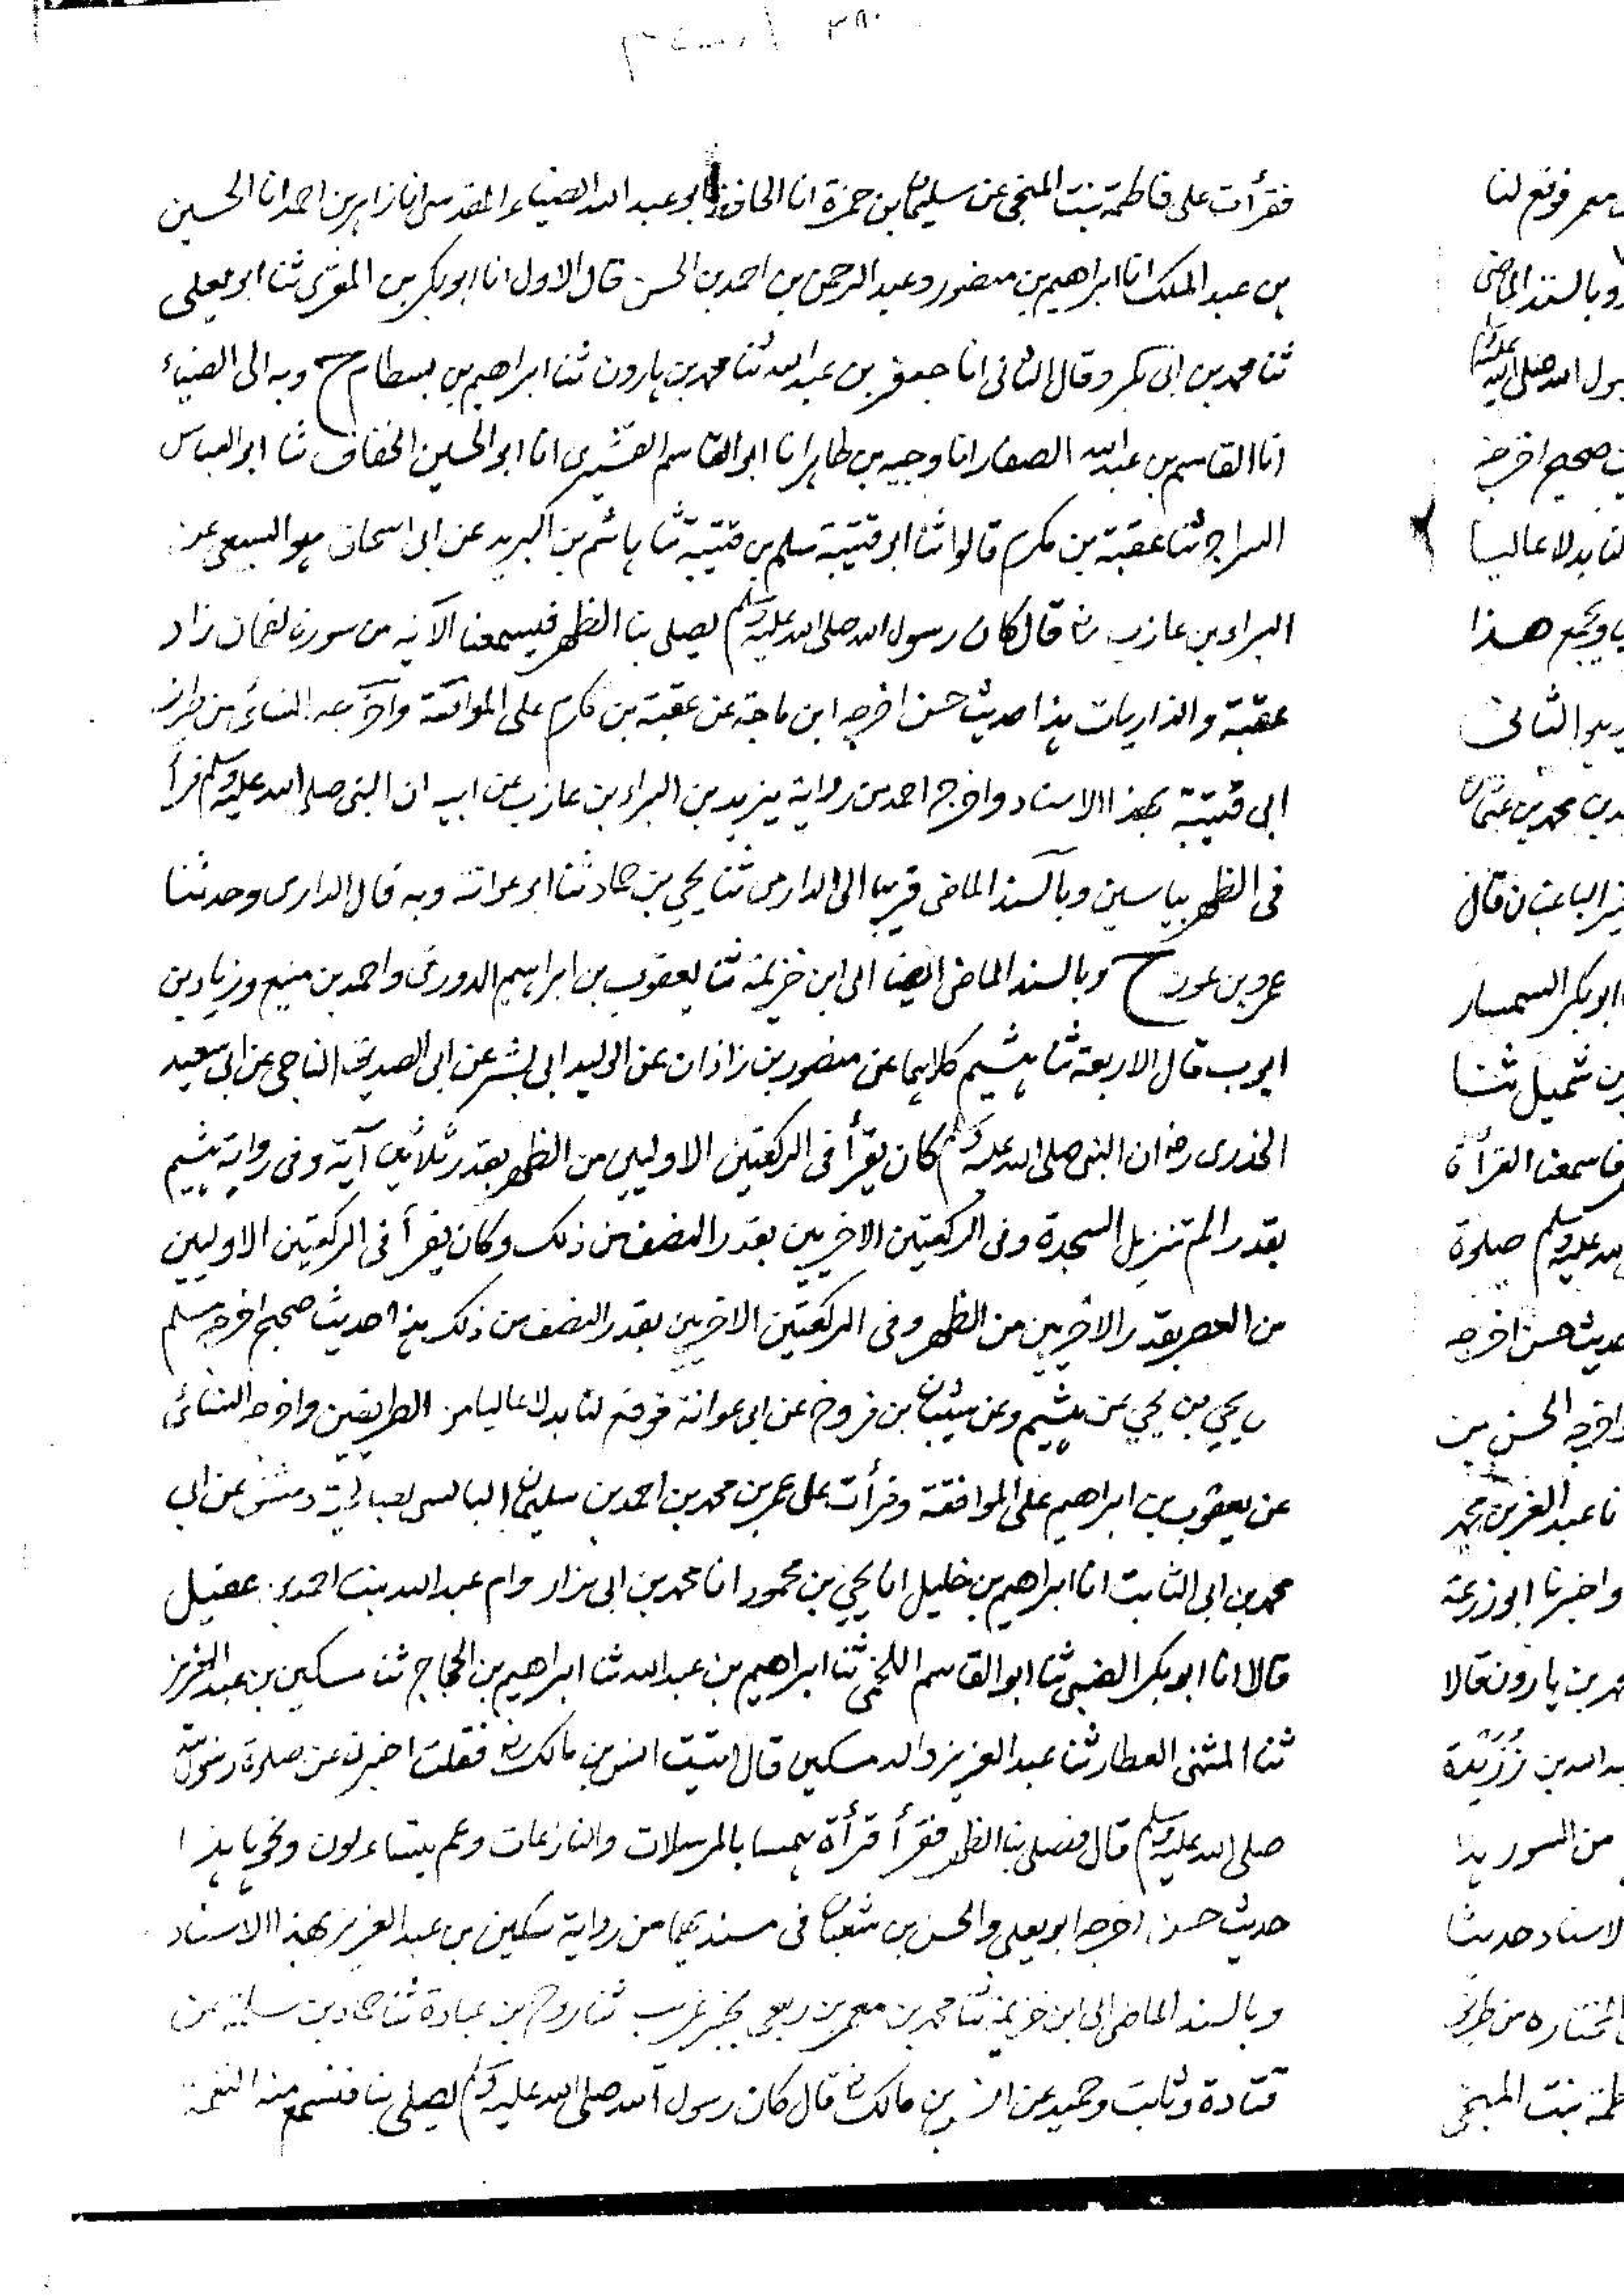 ٣٨٠
فقرأت على فاطمة بنت المنجى عن سليمان بن حمزة انا الحافظ ابو عبد الله الضياء المقدسى انا زاهر بن احمد انا الحسين
بن عبد الملك انا ابراهيم بن منصور وعبد الرحمن بن احمد بن الحسن قال الاول انا ابو بكر بن المقرى ثنا ابو يعلى
ثنا محمد بن ابى بكر وقال الثانى انا جعفر بن عبد الله ثنا محمد بن هارون ثنا ابراهيم بن بسطام ح وبه الى الضياء
انا القاسم بن عبد الله الصفار انا وجيه بن طاهر انا ابو القاسم القشيرى انا ابو الحسين الخفاف ثنا ابو العباس
السراج ثنا عقبة بن مكرم قالوا ثنا ابو قتيبة سلم بن قتيبة ثنا هاشم بن البريد عن ابى اسحاق هو السبيعى عن
البراء بن عازب رض قال كان رسول الله صلى الله عليه وسلم يصلى بنا الظهر فيسمعنا الآية من سورة لقمان زاد
عقبة والذاريات هذا حديث حسن اخرجه ابن ماجة عن عقبة بن مكرم على الموافقة واخرجه النسائى من طريق
ابى قتيبة بهذا الاسناد واخرج احمد من رواية يزيد بن البراء بن عازب عن ابيه ان النبى صلى الله عليه وسلم قرأ
فى الظهر بياسين وبالسند الماضى قريبا الى الدارمى ثنا يحيى بن حماد ثنا ابو عوانة وبه قال الدارمى وحدثنا
عمرو بن عون ح وبالسند الماضى ايضا الى ابن خزيمة ثنا يعقوب بن ابراهيم الدورقى واحمد بن منيع وزياد بن
ايوب قال الاربعة ثنا هشيم كلاهما عن منصور بن زاذان عن الوليد ابى بشر عن ابى الصديق الناجى عن ابى سعيد
الخدرى رض ان النبى صلى الله عليه وسلم كان يقرأ فى الركعتين الاوليين من الظهر بقدر ثلاثين آية وفى رواية هشيم
بقدر الم تنزيل السجدة وفى الركعتين الاخريين بقدر النصف من ذلك وكان يقرأ فى الركعتين الاوليين
من العصر بقدر الاخريين من الظهر وفى الركعتين الاخريين بقدر النصف من ذلك هذا حديث صحيح اخرجه مسلم
يحيى بن يحيى عن هشيم وعن شيبان بن فروخ عن ابى عوانة فوقع لنا بدلا عاليا من الطريقين واخرجه النسائى
عن يعقوب بن ابراهيم على الموافقة وقرأت على عمر بن محمد بن احمد بن سليمان البالسى بصالحية دمشق عن ابى
محمد بن ابى التائب انا ابراهيم بن خليل انا يحيى بن محمود انا محمد بن ابى نزار وام عبد الله بنت احمد بن عقيل
قالا انا ابو بكر الضبى ثنا ابو القاسم اللخمى ثنا ابراهيم بن عبد الله ثنا ابراهيم بن الحجاج ثنا سكين بن عبد العزيز
ثنا المثنى العطار ثنا عبد العزيز والد سكين قال اتيت انس بن مالك رض فقلت اخبرنى عن صلوة رسول الله
صلى الله عليه وسلم قال فصلى بنا الظهر فقرأ قرأة همسا بالمرسلات والنازعات وعم يتساءلون ونحوها هذا
حديث حسن اخرجه ابو يعلى والحسن بن سفيان فى مسنديهما من رواية سكين بن عبد العزيز بهذا الاسناد
وبالسند الماضى الى ابن خزيمة ثنا محمد بن معمر بن ربعى بخبر غريب ثنا روح بن عبادة ثنا حماد بن سلمة عن
قتادة وثابت وحميد عن انس بن مالك رض قال كان رسول الله صلى الله عليه وسلم يصلى بنا فنسمع منه النغمة
معمر فوقع لنا
وبالسند الماضى
رسول الله صلى الله عليه
صحيح اخرجه
لنا بدلا عاليا
ويجمع هذا
الثانى
بن محمد بن عثمان
قال
ابو بكر السمسار
بن شميل ثنا
فاسمعنا القرأة
الله عليه وسلم صلوة
حديث حسن اخرجه
واخرجه الحسن بن
نا عبد العزيز بن محمد
واخبرنا ابو زرعة
بن هارون قالا
من السور هذا
الاسناد حديثا
المختارة من طريق
فاطمة بنت المنجى